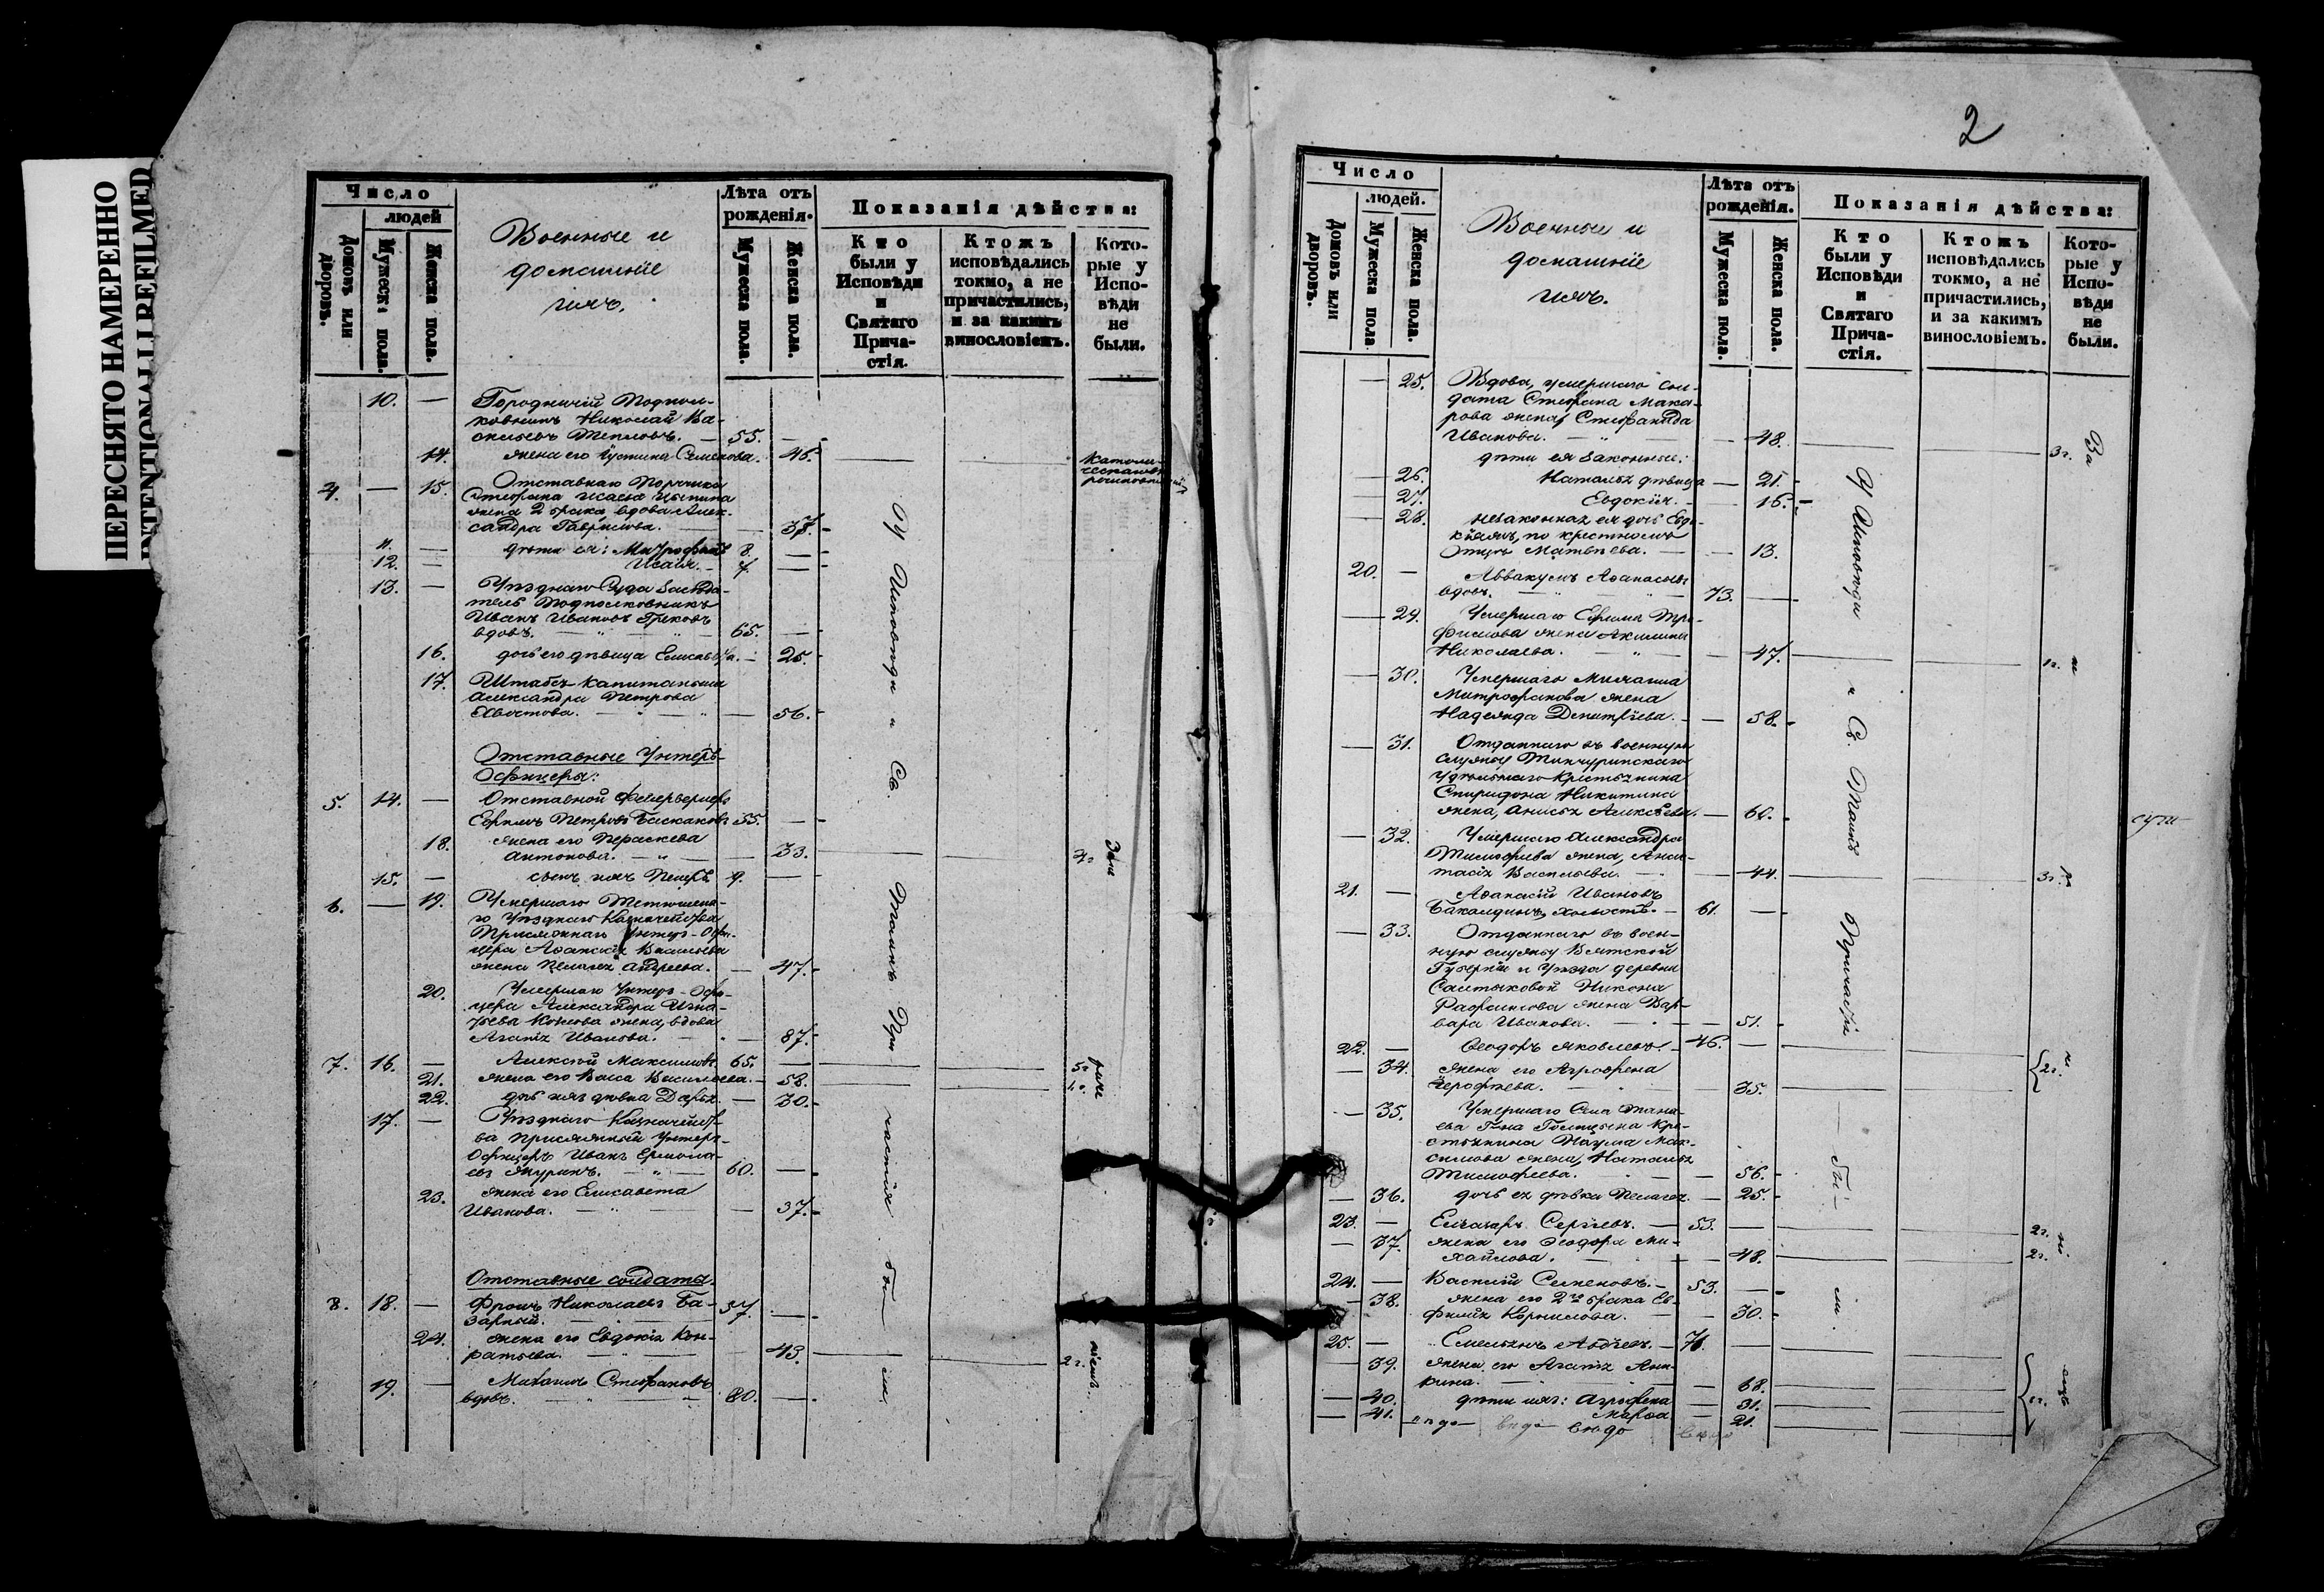 ПЕРЕСНЯТО НАМЕРЕННО
INTENTIONALLY REFILMED
Число
людей
Домовъ или дворовъ.
Мужеска пола.
Женска пола.
Военные и
домашніе
ихъ.
Лѣта отъ
рожденія.
Мужеска пола.
Женска пола.
Показанія дѣйства:
Кто
были у
Исповѣди
и
Святаго
Прича-
стія.
Ктожъ
исповѣдались
токмо, а не
причастились,
и за какимъ
винословіемъ.
Кото-
рые у
Испо-
вѣди
не
были.
10. — Городничій Подпол-
ковникъ Николай Ва-
сильевъ Тепловъ. — 55. —
14. жена его Іустина Семенова. 46.
Католи-
ческаго
4. — 15. Отставнаго Поручика
Стефана Исаева
жена 2 брака, вдова Алек-
сандра Гаврилова. — 38.
11. — дѣти ея: Митрофанъ 8. —
12. — Исаія. 7. —
13. — Уѣзднаго Суда Засѣда-
тель Подполковникъ
Иванъ Ивановъ Грековъ
вдовъ. — 65. —
16. дочь его дѣвица Елисавета. — 25.
17. Штабсъ-Капитанша
Александра Петрова
Хвостова. — 56.
Отставные Унтеръ-
Офицеры:
5. 14. — Отставной Фейерверкеръ
Ефимъ Петровъ Баскаковъ 55. —
18. жена его Параскева
Антонова. — 33.
15. — сынъ ихъ Петръ 9. —
6. — 19. Умершаго Тетюшска-
го Уѣзднаго Казначейства
Присяжнаго Унтеръ-Офи-
цера Афанасія Васильева
жена Пелагея Андреева. — 47.
20. Умершаго Унтеръ-Офи-
цера Александра Игна-
тьева жена, вдова
Агапія Иванова. — 87.
7. 16. — Алексій Максимовъ 65. —
21. жена его Васса Васильева. — 58.
22. дочь ихъ дѣвка Дарья. — 30.
17. — Уѣзднаго Казначейст-
ва присяжный Унтеръ-
Офицеръ Иванъ Ермола-
евъ Журинъ. — 60. —
23. жена его Елисавета
Иванова. — 37.
Отставные солдаты.
8. 18. — Фролъ Николаевъ Ба-
зарный. 57. —
24. жена его Евдокія Кон-
ратьева. — 43. 2г.
19. — Михаилъ Стефановъ
вдовъ. — 80. —
У Исповѣди и Св. Таинъ При частія бы ли.
2
Число
людей.
Домовъ или дворовъ.
Мужеска пола
Женска пола.
Военные и
домашніе
ихъ.
Лѣта отъ
рожденія.
Мужеска пола.
Женска пола.
Показанія дѣйства:
Кто
были у
Исповѣди
и
Святаго
Прича-
стія.
Ктожъ
исповѣдались
токмо, а не
причастились,
и за какимъ
винословіемъ.
Кото-
рые у
Испо-
вѣди
не
были.
— 25. Вдова, умершаго сол-
дата Стефана Мака-
рова жена, Стефанида
Иванова. — 48. 3г.
дѣти ея законные:
— 26. Наталья дѣвица — 21.
— 27. Евдокія. — 16.
— 28. незаконная ея дочь Евдо-
кія, по крестному
Отцу Матвѣева. — 13.
20. — Аввакумъ Афанасьевъ
вдовъ. 73. —
— 29. Умершаго Ефима Тро-
фимова жена Акилина
Николаева. — 47. 1г.
— 30. Умершаго Михаила
Митрофанова жена
Надежда Димитріева. — 58.
— 31. Отданнаго въ военную
службу Тинчуринскаго
Удѣльнаго Крестьянина
Спиридона Никитина
жена, Анисья Алексѣева. — 60.
— 32. Умершаго Александра
Тимофеева жена, Анас-
тасія Васильева. — 44. 3г.
21. — Афанасій Ивановъ
Бакалдинъ, холостъ. — 61. —
— 33. Отданнаго въ воен-
ную службу Вятской
Губерніи и Уѣзда деревни
Салтыковой Никона
жена Вар-
вара Иванова. — 51.
22. — Феодоръ Яковлевъ. 46. —
— 34. жена его Агрофена
Ерофѣева. — 35. 2г.
— 35. Умершаго
Голицына Кре-
стьянина Наума Мак-
симова жена, Наталья
Тимофеева. — 56.
— 36. дочь ея дѣвка Пелагея. — 25.
23. — Елизаръ Сергѣевъ. — 53. — 2г.
— 37. жена его Феодора Ми-
хайлова. — 48. 2г.
24. — Василій Семеновъ. — 53. —
— 38. жена его 2го брака Ев-
фимія Корнилова. — 30.
25. — Емельянъ Авдѣевъ. — 71. —
— 39. жена его Агапія Ани-
кина. — 68.
— 40. дѣти ихъ: Агрофена — 31.
— 41. Марфа — 21.
У Исповѣди и Св. Таинъ Причастія бы ли.